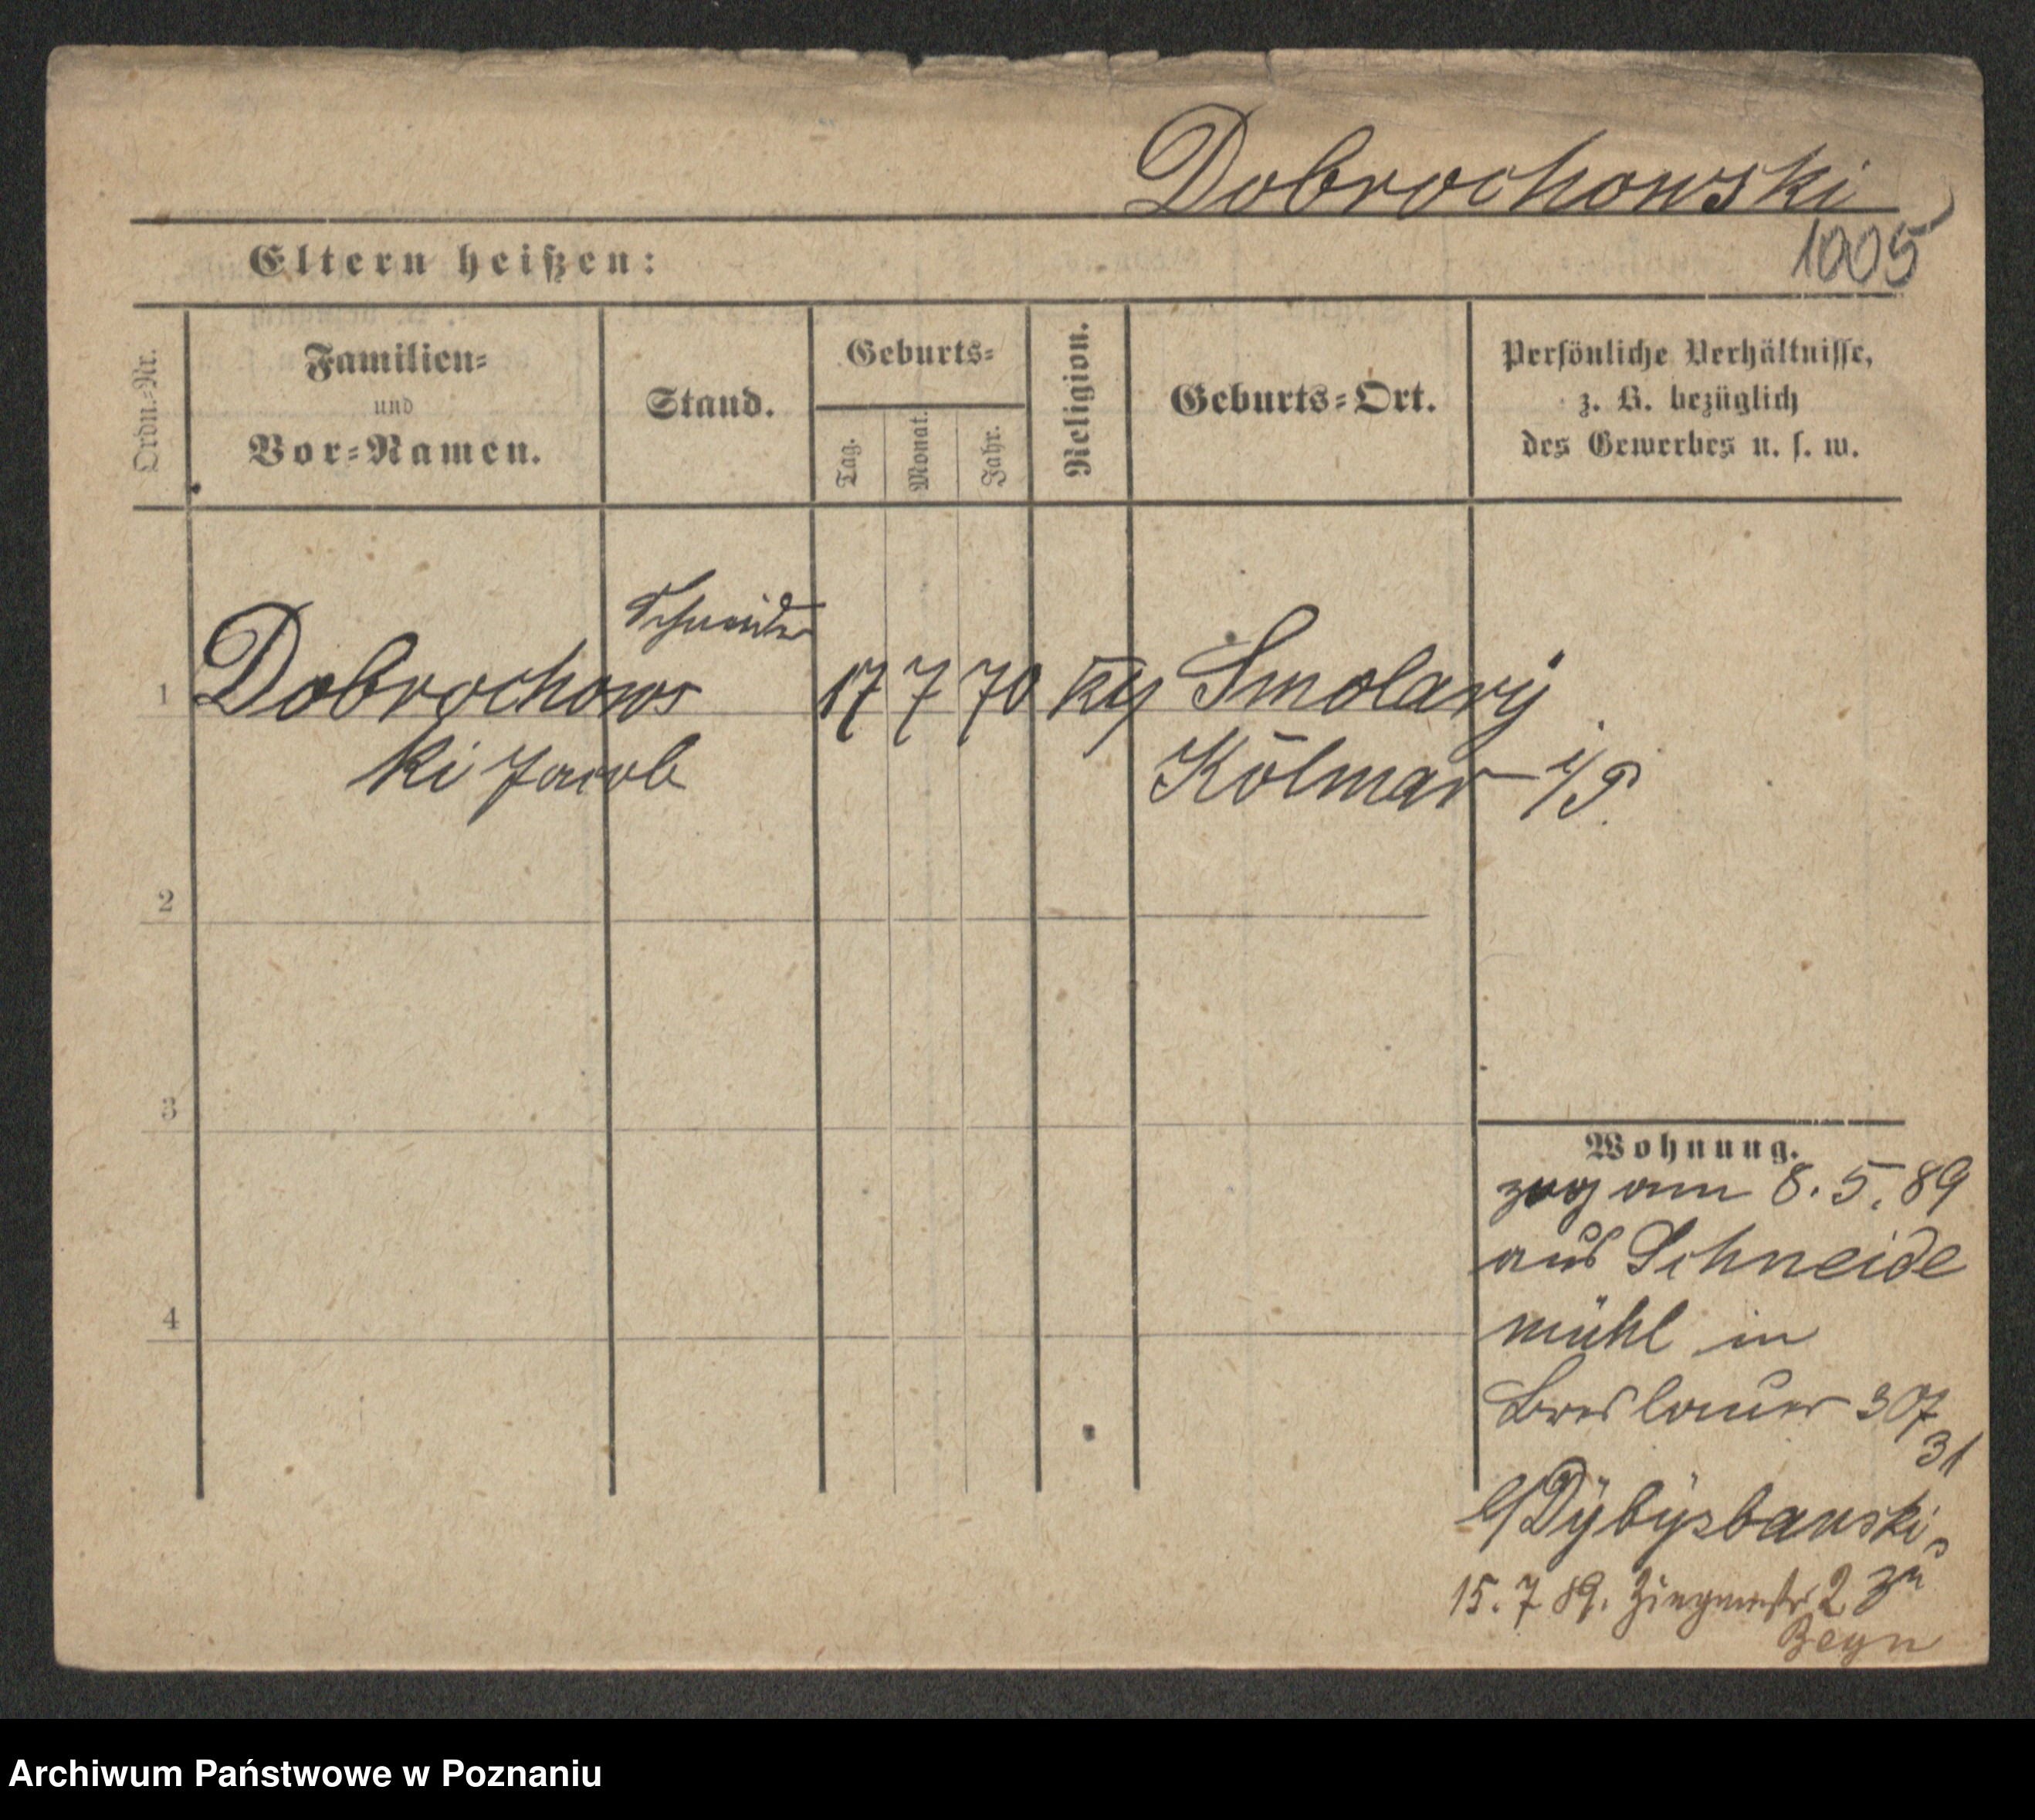 Dobrochowski
1005
Eltern heißen:
Ordn.-Nr.
Familien-
und
Vor-Namen.
Stand.
Geburts-
Tag.
Monat.
Jahr.
Religion.
Geburts-Ort.
Persönliche Verhältnisse,
z. B. bezüglich
des Gewerbes u. s. w.
Schneider
1 Dobrochows 17 7 70 Smolary
ki Jacob Kolmar i/P.
2
3
4
Wohnung.
zog am 8. 5. 89
aus Schneide
mühl in
Breslauer 30/
31
b/Dybysbanski
15. 7 89. 2 zu
Archiwum Państwowe w Poznaniu